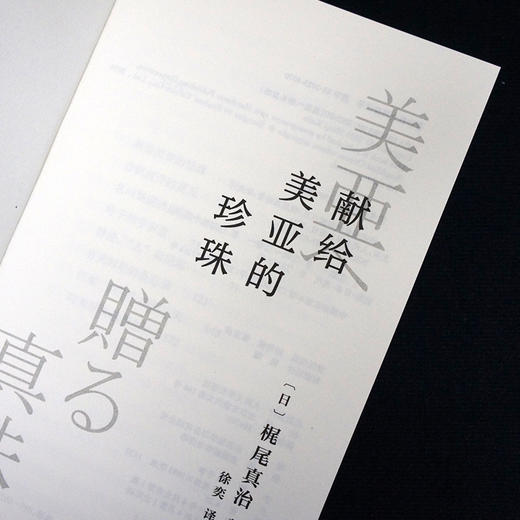 美亜へ
贈る
真珠
献给
美亚的
珍珠
〔日〕梶尾真治
徐奕 译